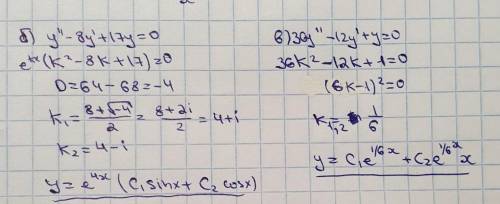 б) y'' - 8y' + 17y = 0
e^{kx}(k² - 8k + 17) = 0
D = 64 - 68 = -4
k₁ = (8 + √-4)/2 = (8 + 2i)/2 = 4 + i
k₂ = 4 - i
y = e^{4x} (C₁ sinx + C₂ cosx)
в) 36y'' - 12y' + y = 0
36k² - 12k + 1 = 0
(6k - 1)² = 0
k₁,₂ = 1/6
y = C₁e^{1/6 x} + C₂e^{1/6 x} x